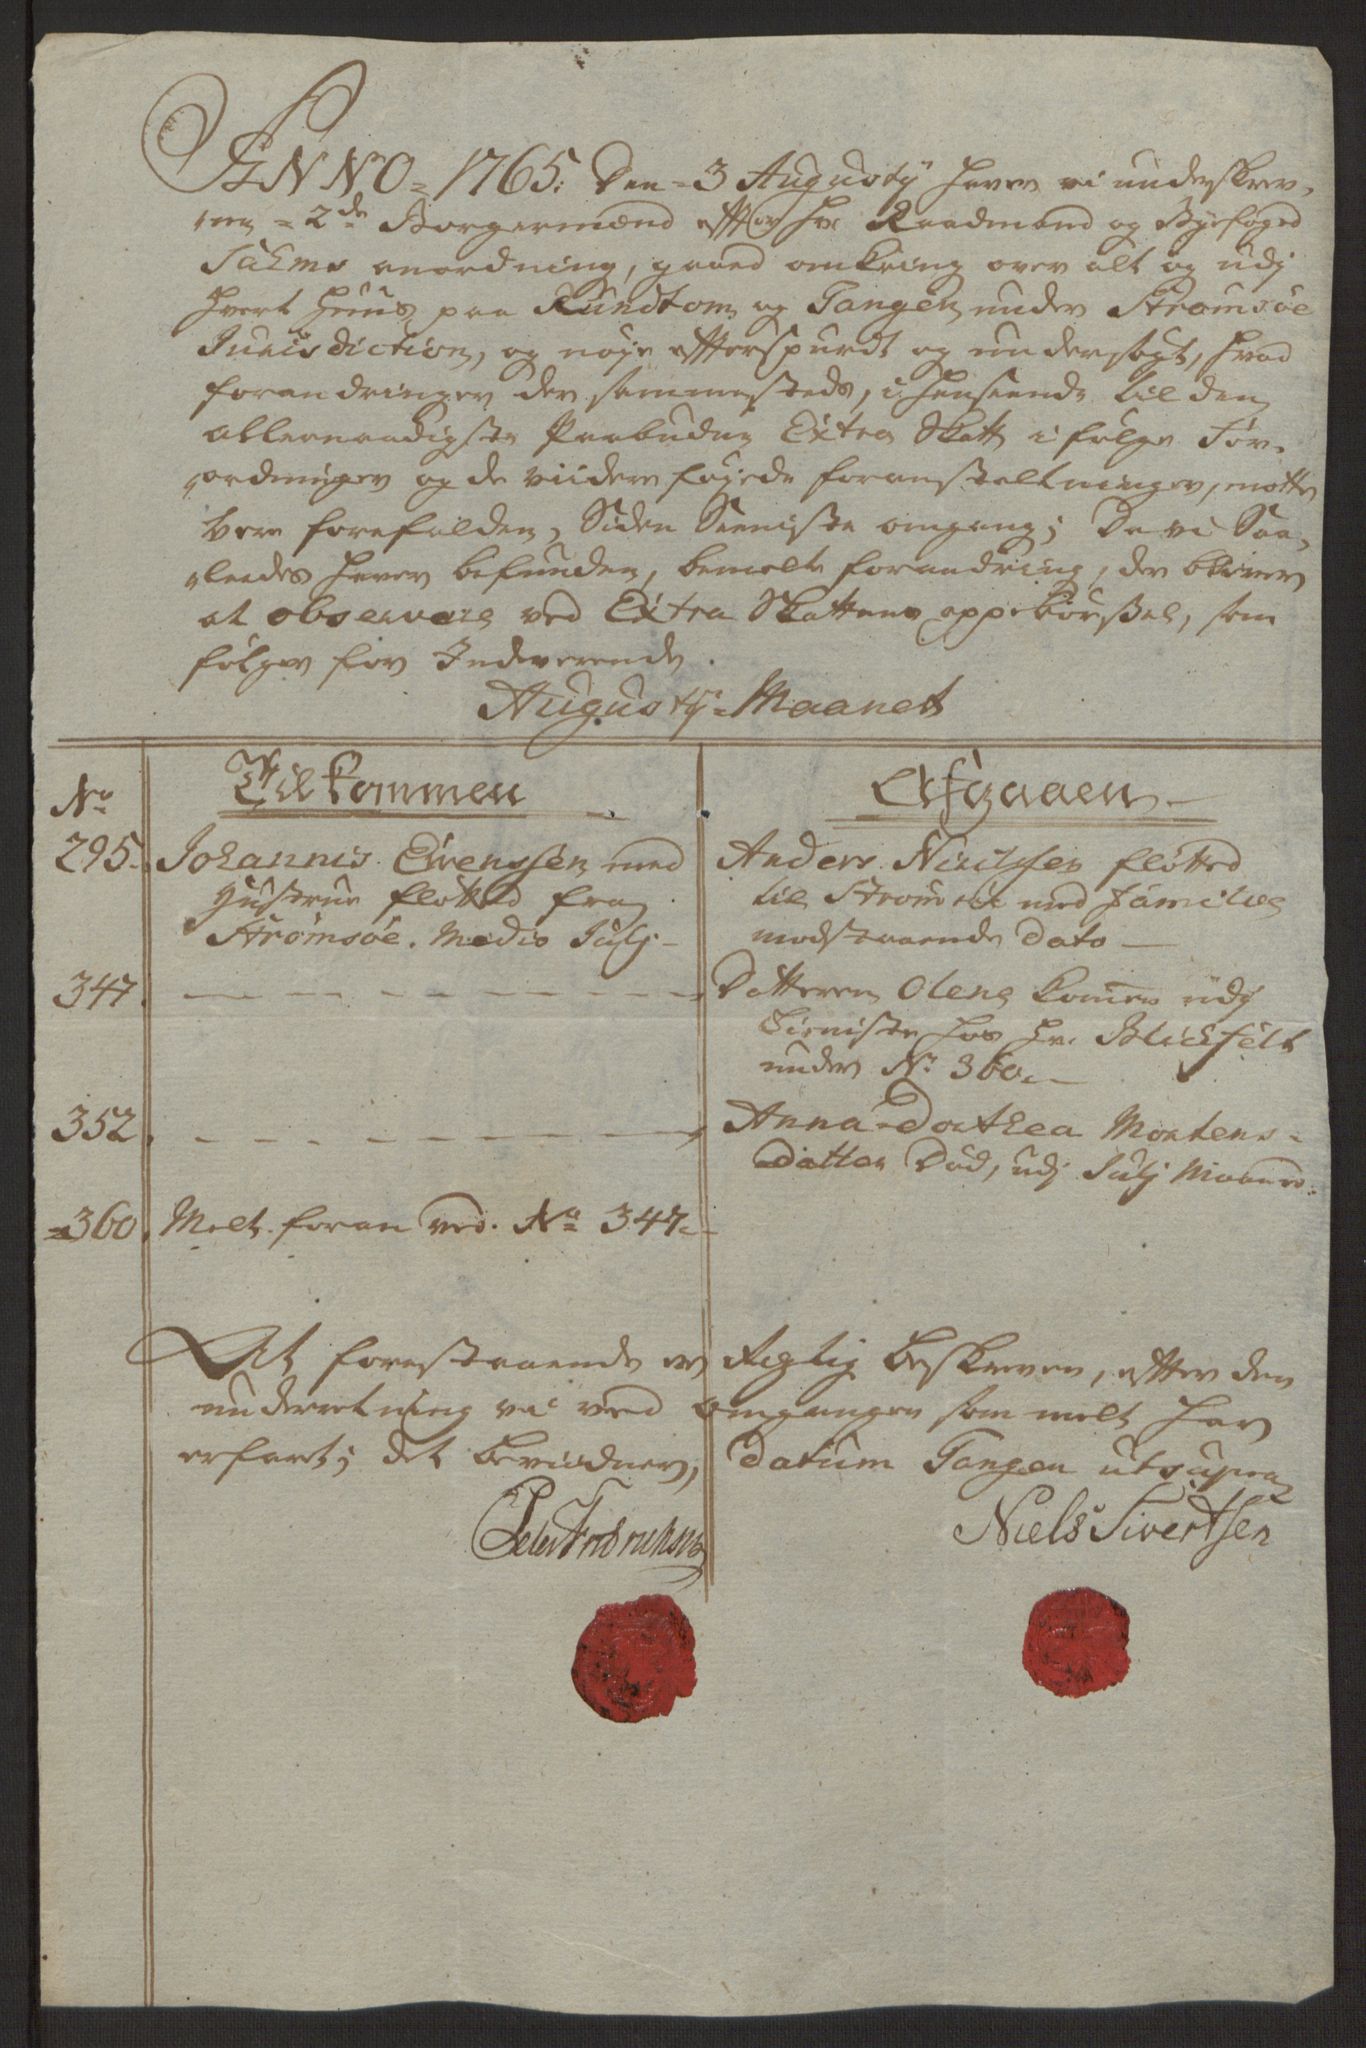 ANNO = 1765: Den = 3 Augusty haver vi underskrev-
nen = 2de Borgermænd efter Hr. Raadmand og Byefoged
Sahms anordning, gaaed omkring over alt og udj
hvert Huus paa Rundtom og Tangen under Strømsøe
Jurisdiction, og nøye efterspurdt og undersøgt, hvad
forandringer der sammesteds, i henseende til den
allernaadigste Paabudne Extra Skatt i følge For-
ordninger og de viidere føyede foranstaltninger, motte
være forefalden, Siden Seeniste omgang; Da vi Saa-
leedes haver befunden, bemelte forandring, der bliver
at observere ved Extra Skattens oppebørsel, som
følger for Indeverende.
Augusty Maanet
No Tilkommen Afgaaen
295. Johannis Evensen med Anders Nielsen flötted
Hustrue flötted fra til Strømsöe med Familie
Strømsöe. Medio Julj modstaaende Dato
347. Datteren Olene kommen udj
Tieniste hos Hr. Blichfelt
under No 360.
352. Anna Dorthea Mortens-
datter Död, udj Julj Maaned.
360. Melt foran ved No 347.
At forestaaende er Rigtig beskreven, efter den
underretning vi ved omgangen som melt har
erfart; det bevidner, Datum Tangen ut supra
Peter Fridrichsen Niels Sivertsen